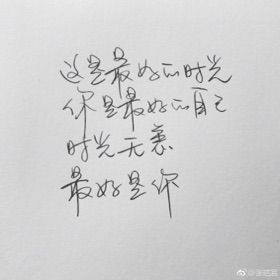 这是最好的时光
你是最好的自己
时光无裹
最好是你